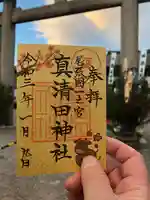 奉拝
尾張國一之宮
真清田神社
令和三年一月